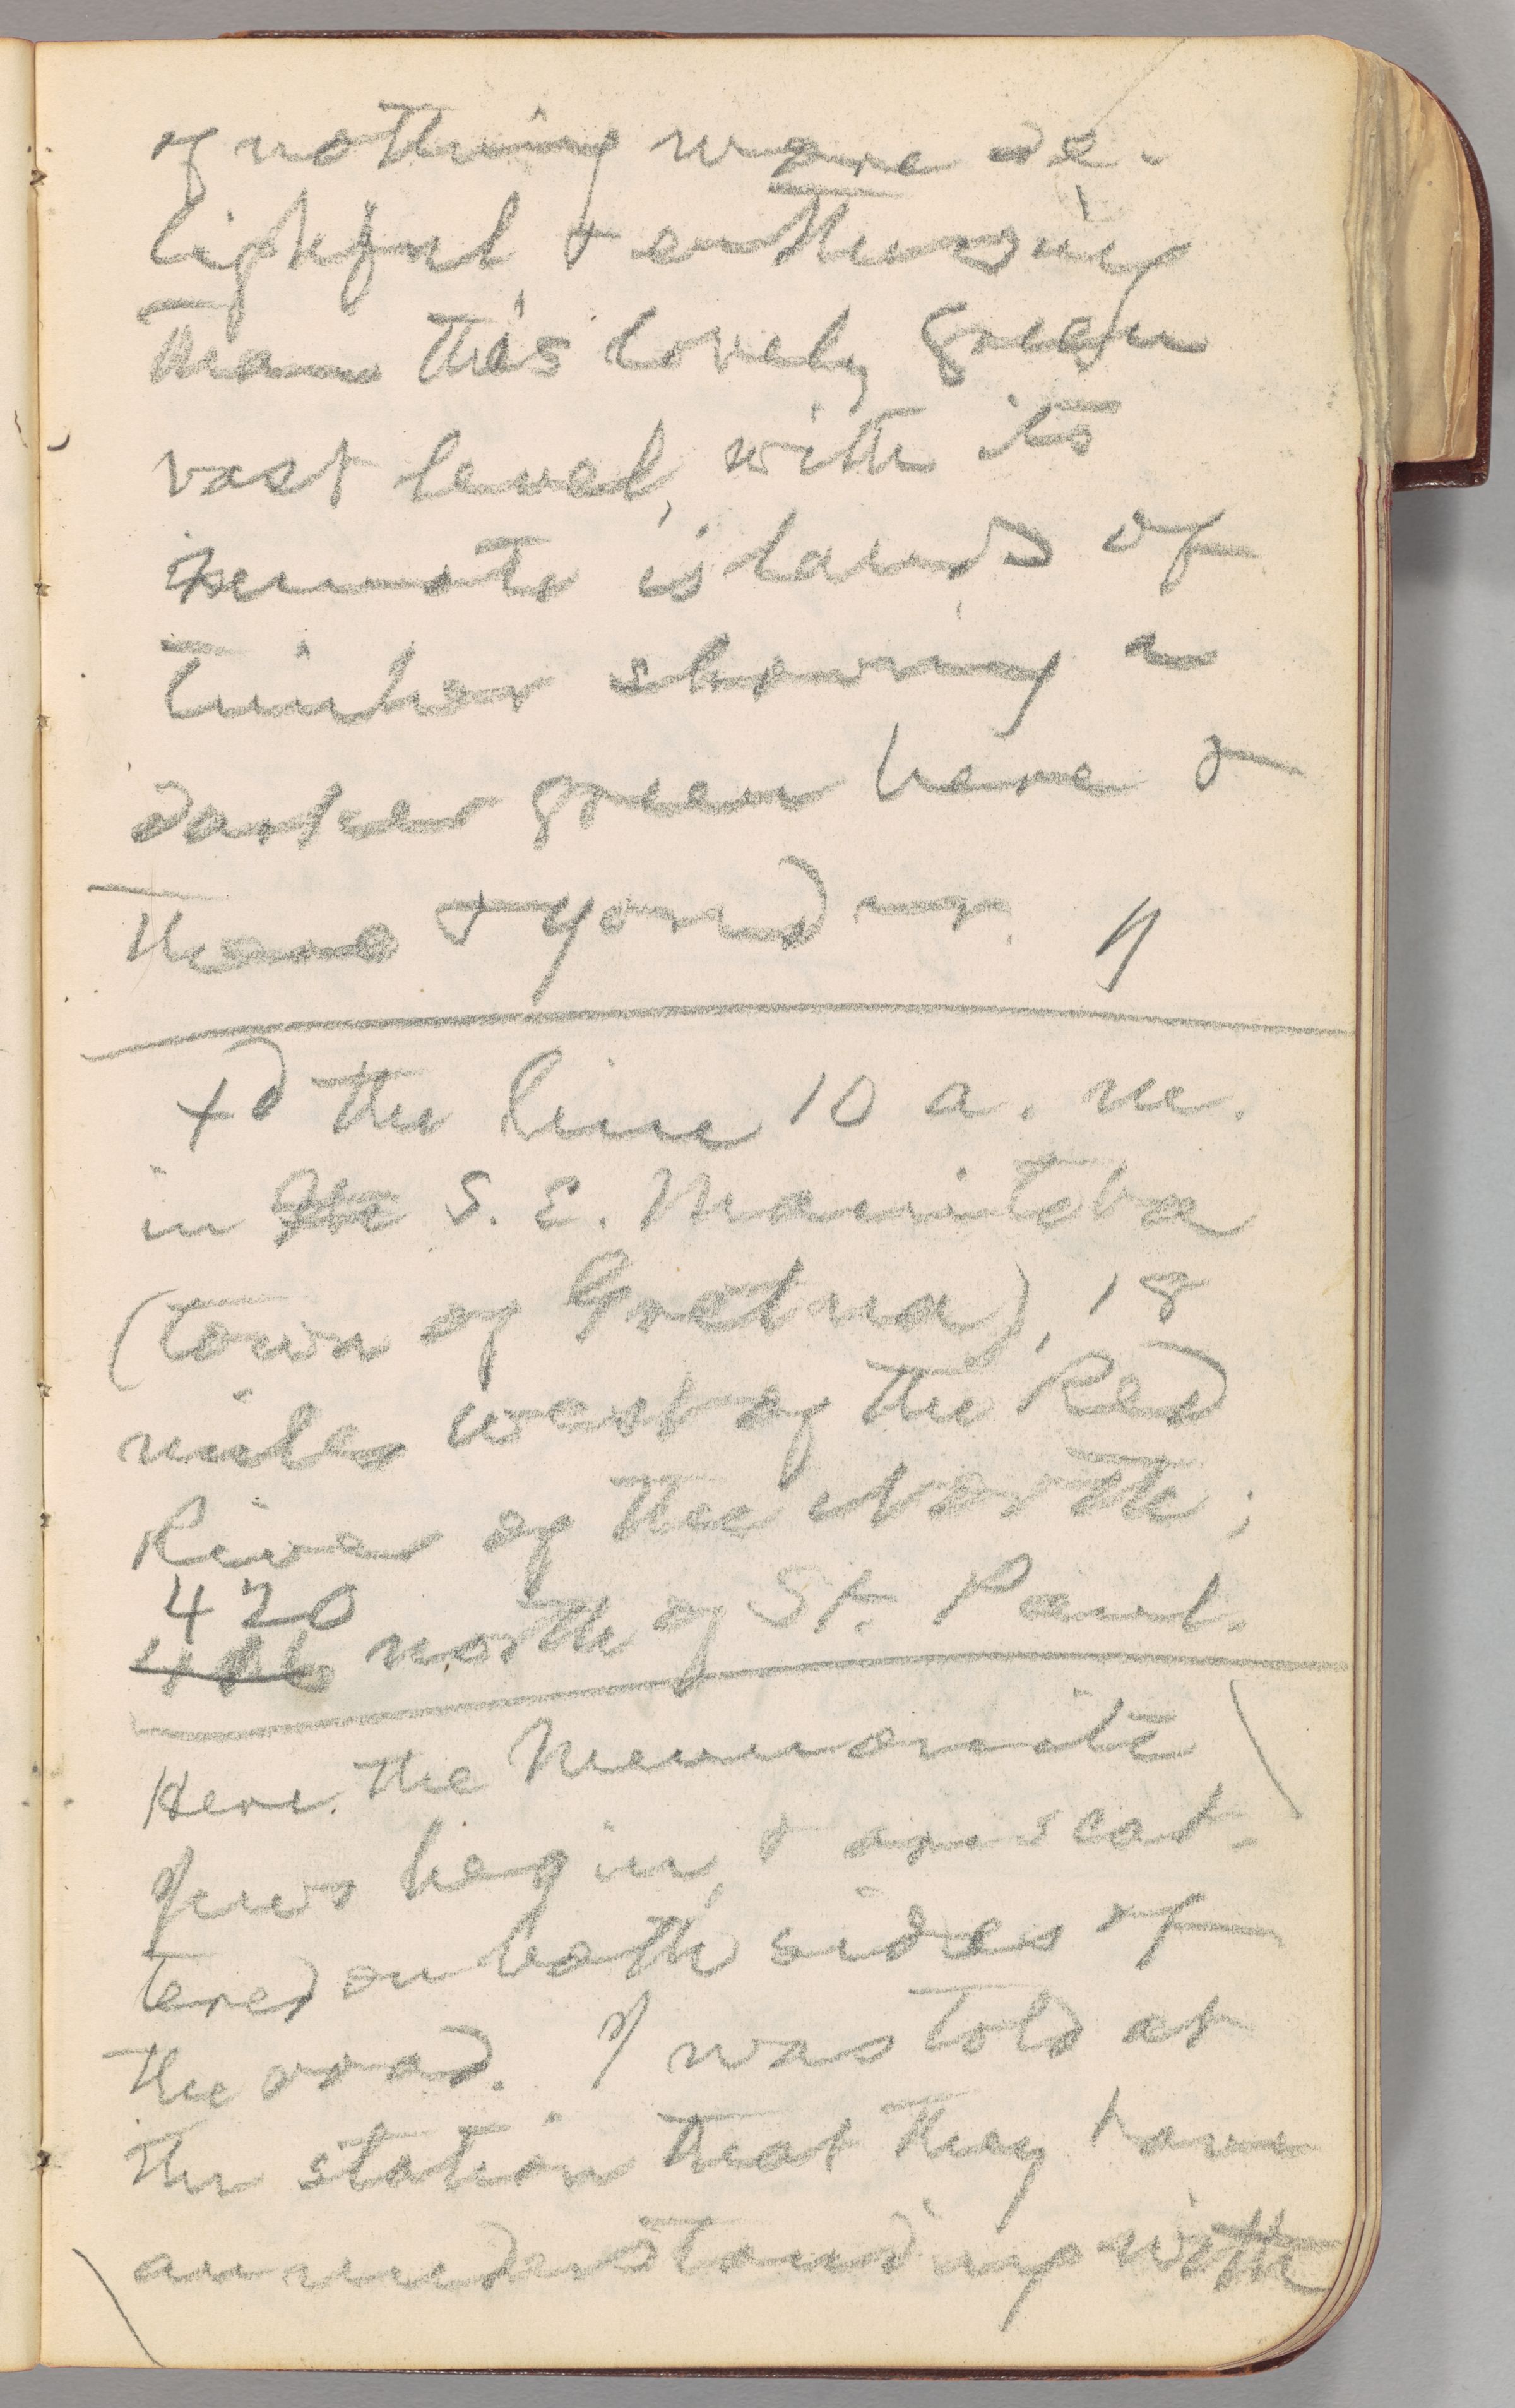 of nothing more de-
lightful & enthusing
than this lovely green
vast level, with its
remote islands of
timber showing a
darker green here &
there & yonder.
xd the line 10 a. m.
in the S. E. Manitoba
(town of Gretna), 18
miles west of the Red
River of the North;
420
406 north of St. Paul.
Here the Mennonite
Jews begin, & are scat-
tered on both sides of
the road. I was told at
the station that they have
an understanding with